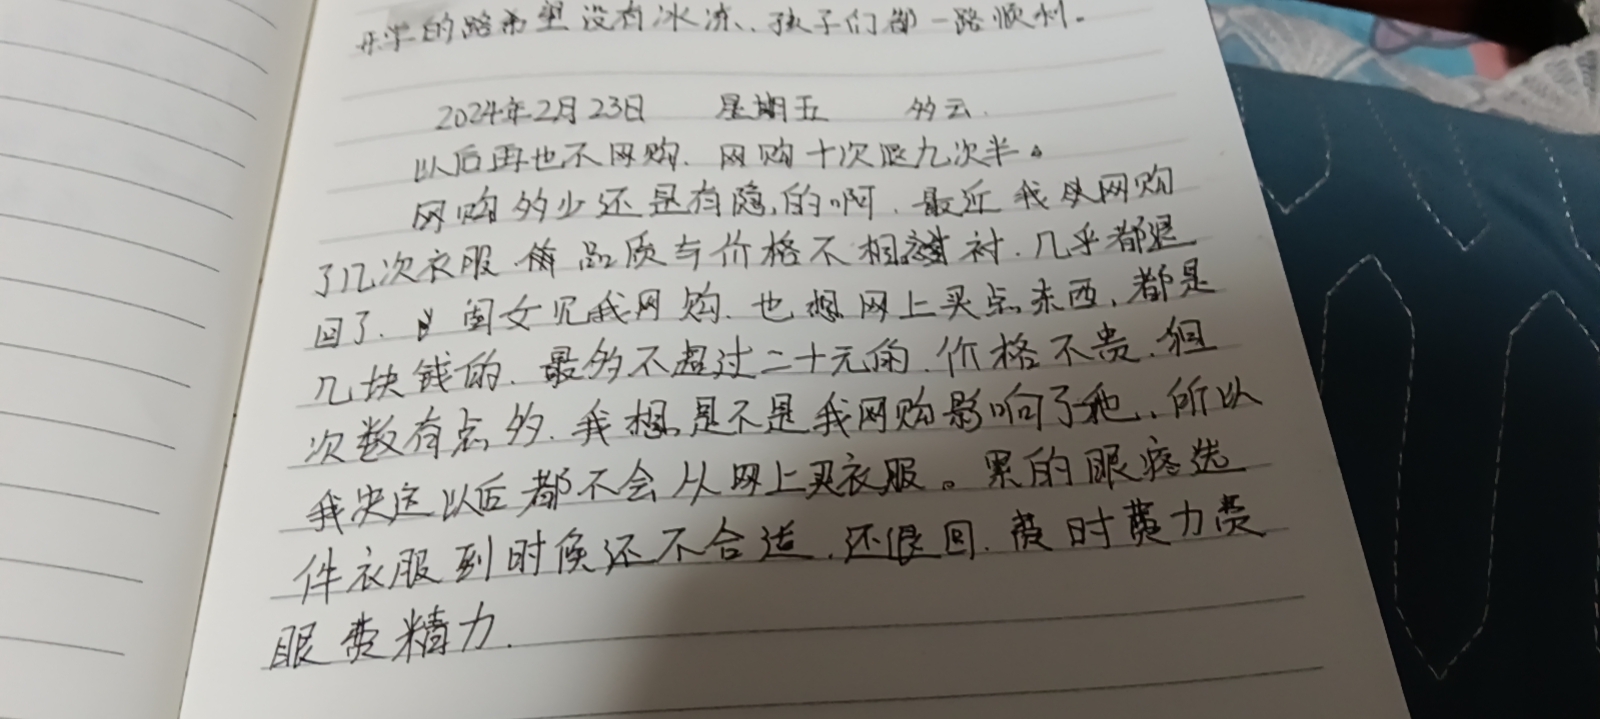 开学的路希望没有冰冻、孩子们都一路顺利。
2024年2月23日 星期五 多云.
以后再也不网购. 网购十次退九次半。
网购多少还是有隐的啊. 最近我从网购
了几次衣服. 品质与价格不相衬. 几乎都退
回了. 闺女见我网购. 也想网上买点东西, 都是
几块钱的. 最多不超过二十元的. 价格不贵. 但
次数有点多. 我想是不是我网购影响了她. 所以
我决定以后都不会从网上买衣服。累的眼疼选
件衣服到时候还不合适. 还退回. 费时费力费
眼费精力.